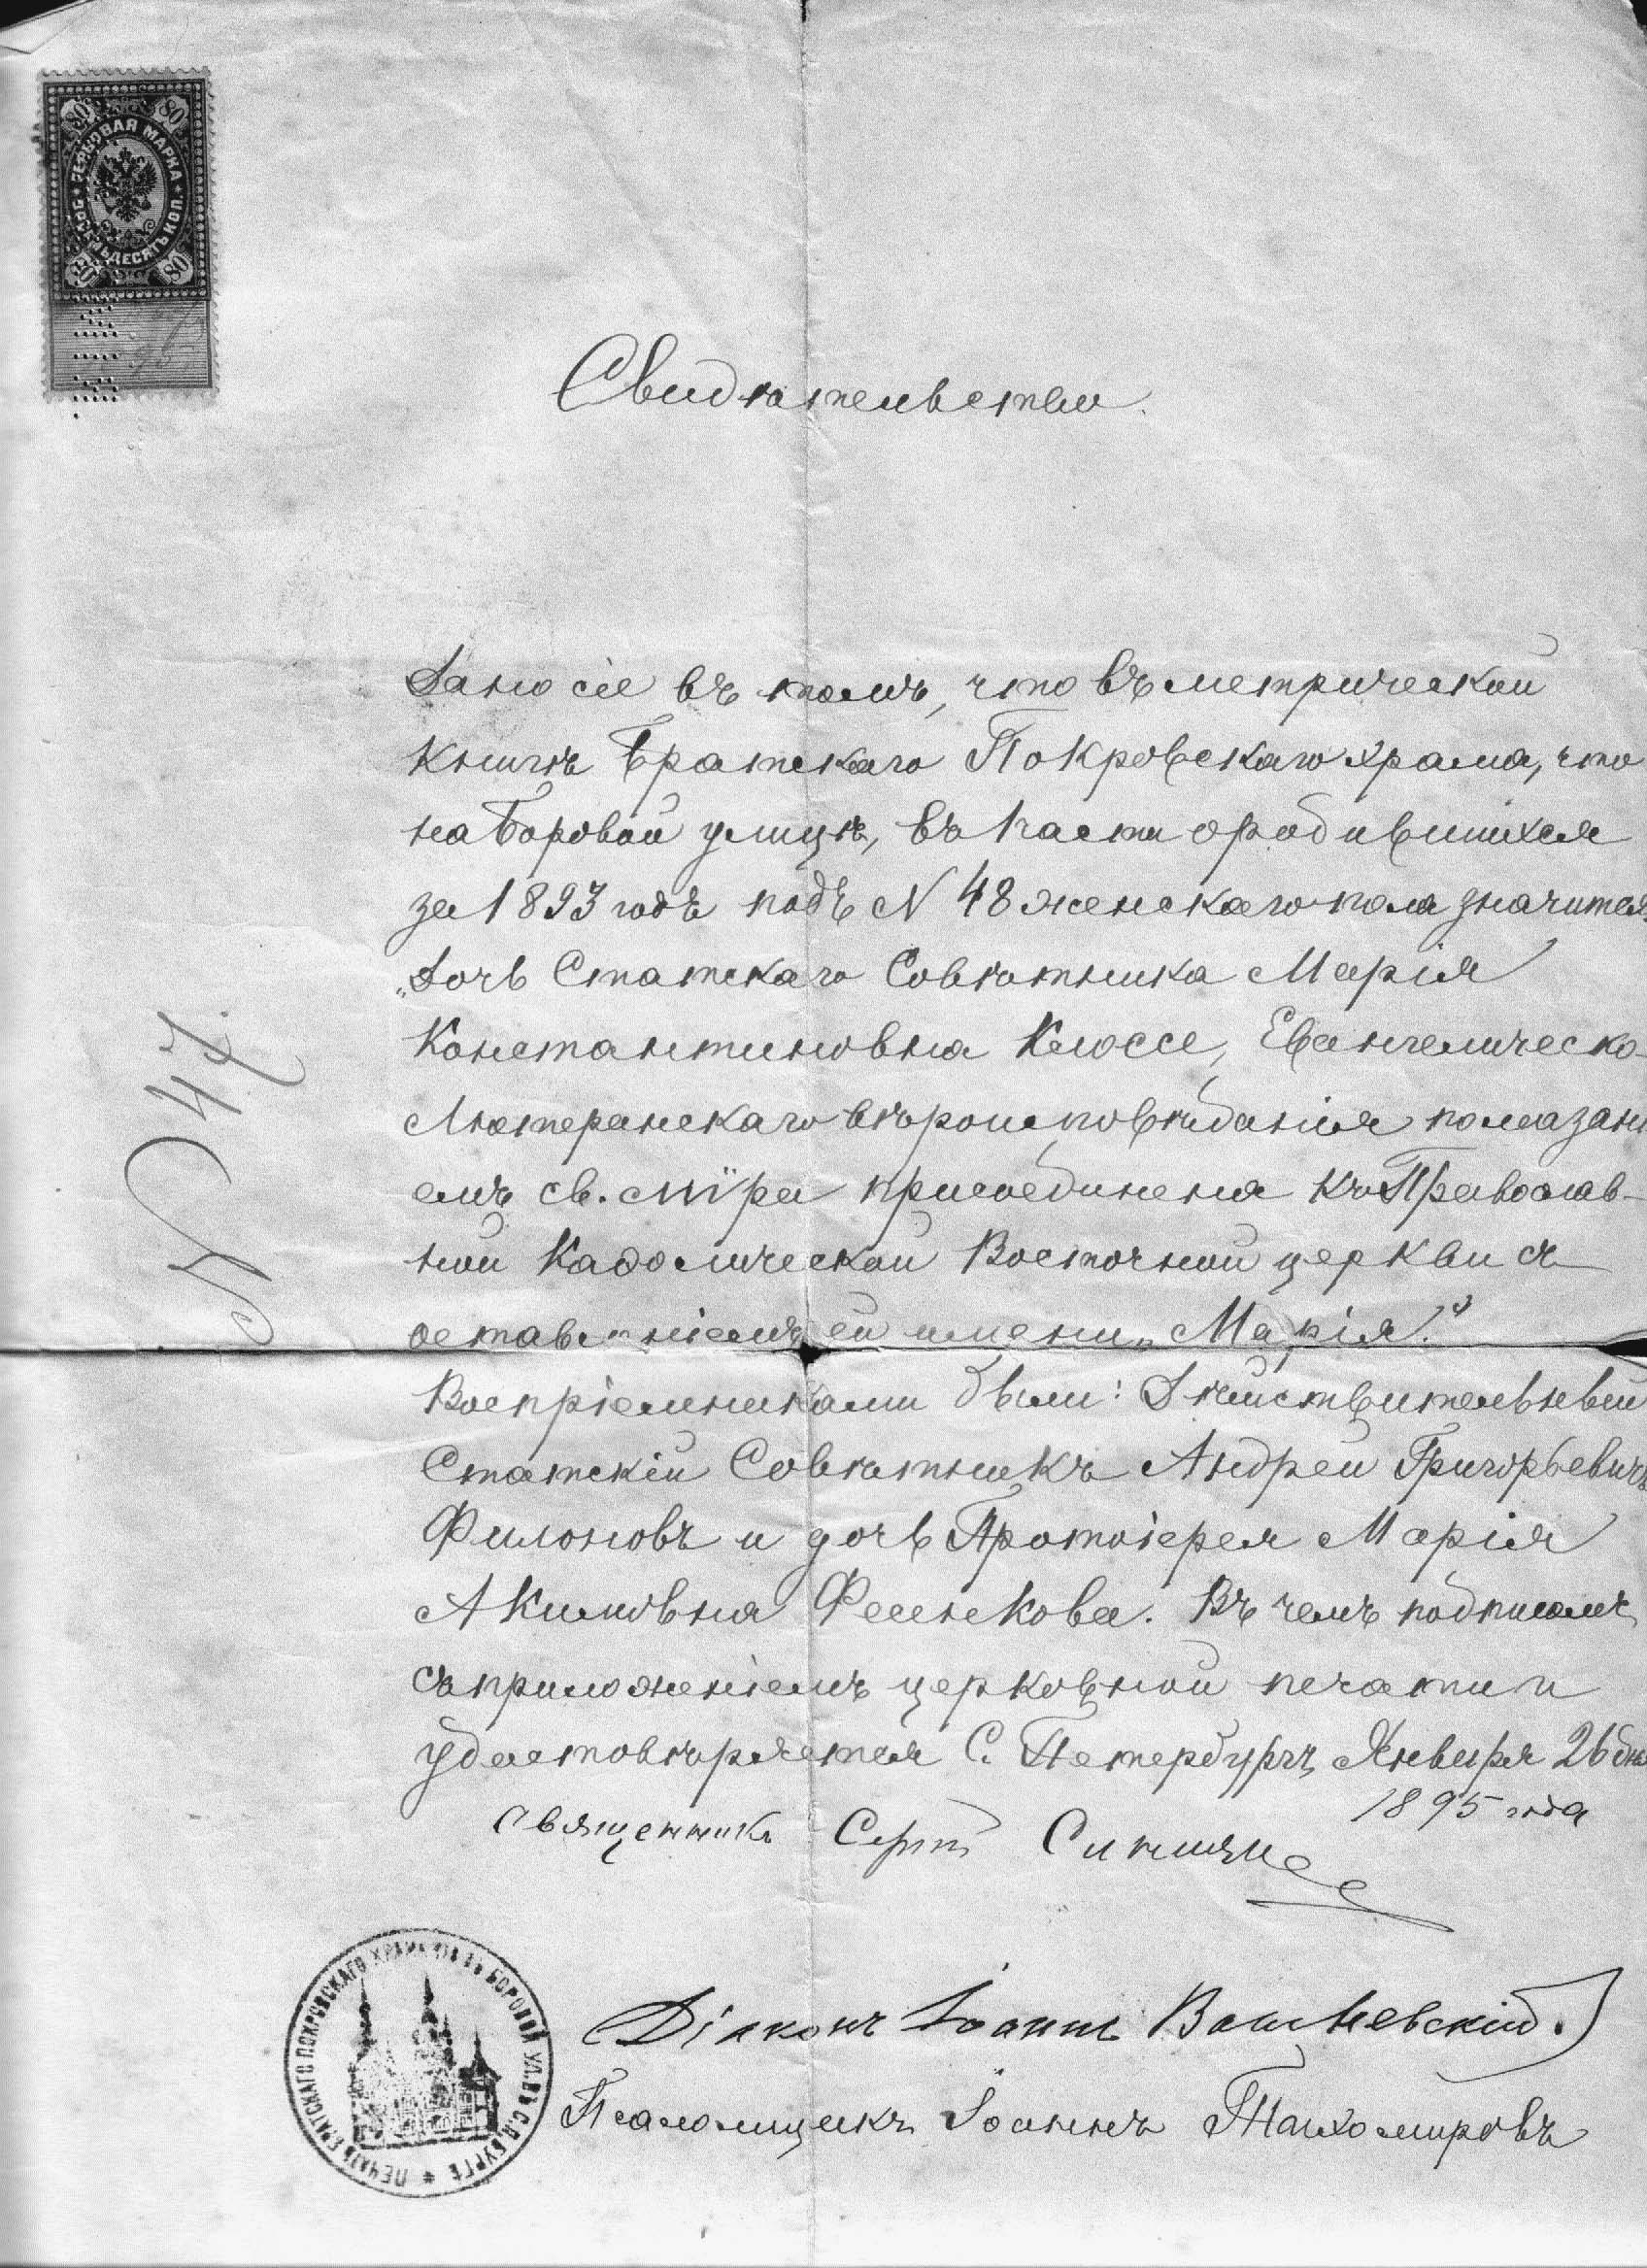 80 80
ГЕРБОВАЯ МАРКА
ВОСЕМЬДЕСЯТЪ КОП.
80 80
Свидѣтельство.
Дано сіе въ томъ, что въ метрической
книгѣ Братскаго Покровскаго храма, что
на Боровой улицѣ, въ части о родившихся
за 1893 годъ подъ № 48 женскаго пола значится:
„Дочь Статскаго Совѣтника Марія
Константиновна Клюссе, Евангелическо-
Лютеранскаго вѣроисповѣданія помазані
емъ св. мѵра присоединена къ Православ-
ной Каѳолической Восточной церкви съ
оставленіемъ ей имени „Марія."
Воспріемниками были: Дѣйствительный
Статскій Совѣтникъ Андрей Григорьевичъ
Филоновъ и дочь Протоіерея Марія
Акимовна Фесенкова. Въ чемъ подписомъ
съ приложеніемъ церковной печати и
удостовѣряется С. Петербургъ, Января 26 дня
1895 года
Священникъ Сергій
Діаконъ Іоаннъ
Псаломщикъ Іоаннъ Тихомировъ
№ 47.
ПЕЧАТЬ БРАТСКАГО ПОКРОВСКАГО ХРАМА ЧТО ВЪ БОРОВОЙ УЛ. ВЪ С.П.БУРГѢ